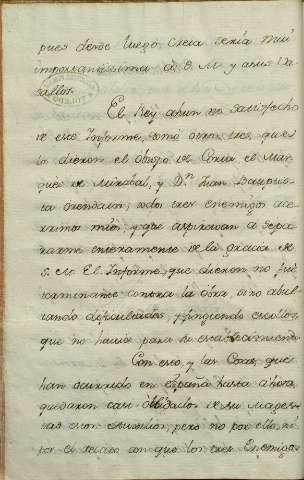 pues desde luego creia seria mui
importantissima à S. M. y a sus Va-
sallos.
El Rey ahun no satisfecho
de este Informe, tomó otros tres, que se
lo dieron el Obispo de Coria, el Mar-
ques de Miraval, y Dn. Juan Baupis-
ta Orendain; todos tres enemigos ace-
rrimos mios, y que aspiravan à sepa-
rarme enteramente de la gracia de
S. M. El Informe, que dieron no fué
terminante contra la obra, sino abul-
tando dificultades, y fingiendo escollos
que no havia para su establecimiento.
Con esto, y las Cosas, que
han ocurrido en España hasta ahora,
quedaron casi olvidados de su Mages-
tad estos asumptos, pero no por ello, ni
por el estado con que los tres Enemigos